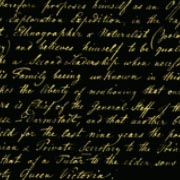 therefore proposes himself as an
Exploration Expedition, in the
Ethnographer & Naturalist
and believes himself to be
a Second Leadership when
his Family having unknown in this
takes the liberty of mentioning that one
is Chief of the General Staff of the
Hesse Darmstadt, and that another
for the last nine years the
& Private Secretary to the
that of a Tutor to the elder sons
Queen Victoria.